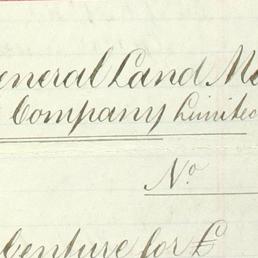 General Land Mo
Company Limited
No
benture for £